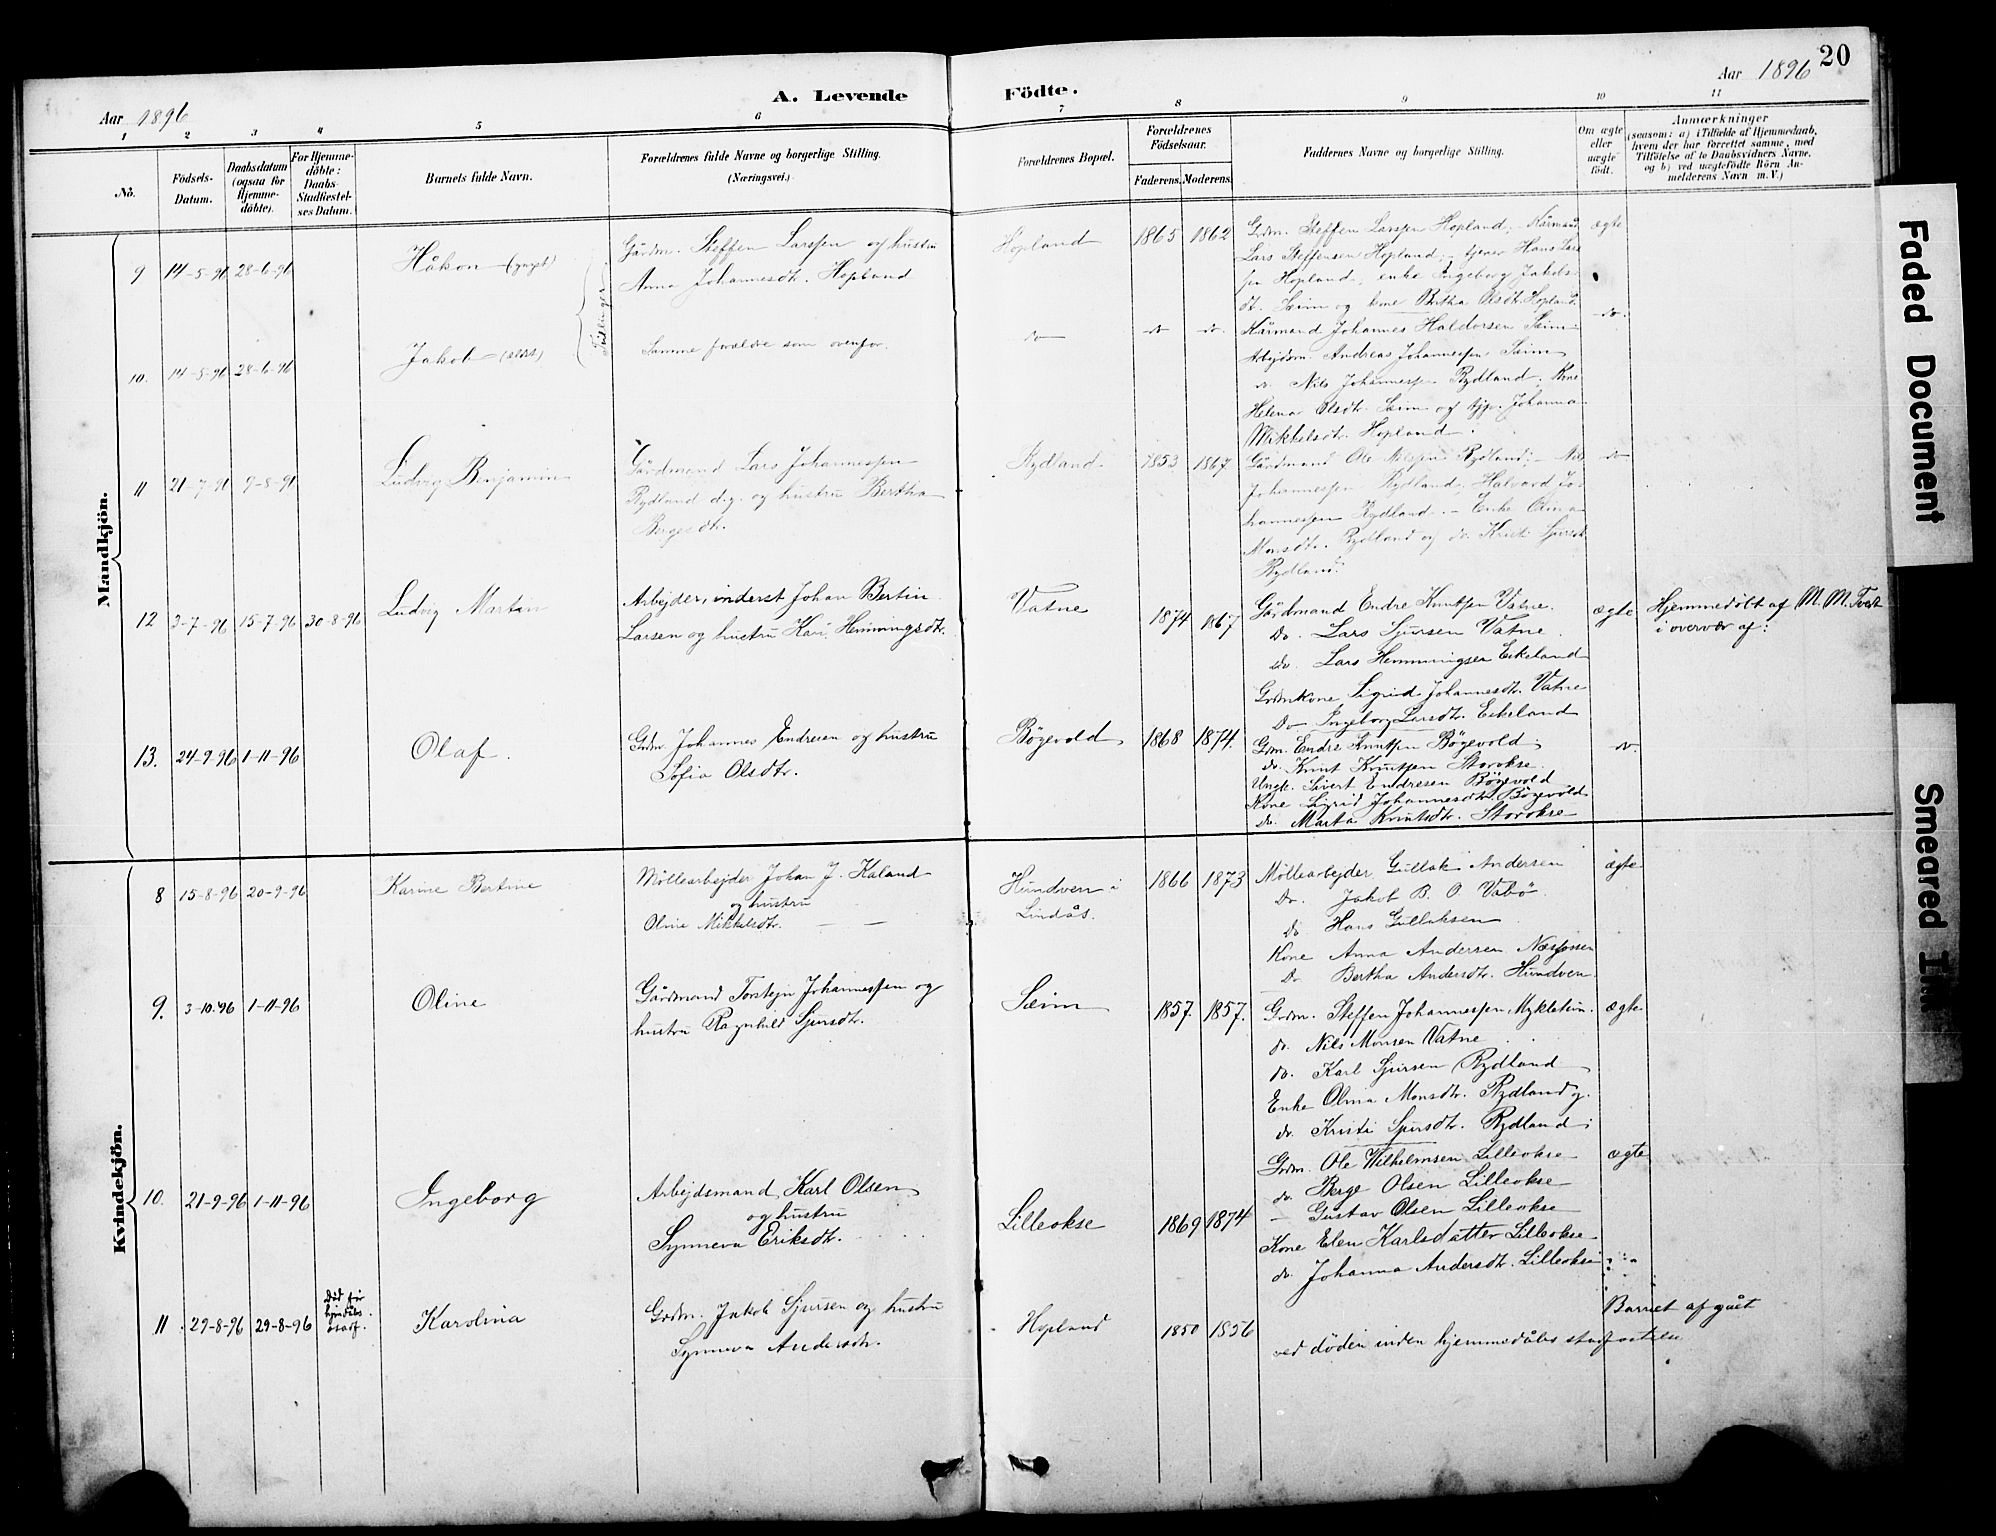 Aar 1896
A. Levende Födte.
Aar 1896
20
1 2 3 4 5 6 7 8 9 10 11
No.
Födsels-Datum.
Daabsdatum (ogsaa for Hjemmedöbte).
For Hjemmedöbte: Daabs-Stadfestelses Datum.
Barnets fulde Navn.
Forældrenes fulde Navne og borgerlige Stilling.
(Næringsvei.)
Forældrenes Bopæl.
Forældrenes Födselsaar.
Faderens. Moderens.
Faddernes Navne og borgerlige Stilling.
Om ægte eller uægte födt.
Anmærkninger
(saasom: a) i Tilfælde af Hjemmedaab, hvem der har forrettet samme, med Tilföielse af to Daabsvidners Navne, og b) ved uægtefödte Börn Anmelderens Navn m. V.)
Mandkjön.
9 14-5-96 28-6-96 Håkon (yngst)
Tvillinger
Gårdm. Steffen Larssen og hustru
Anna Johannesdtr. Hopland
Hopland 1865 1862
Grdm. Steffen Larssen Hopland, Kårmand
Lars Steffensen Hopland, tjener Hans Lars
sen Hopland, enke Ingeborg Jakobs
dtr. Sæim og kone Bertha Olsdtr. Hopland.
ægte
10. 14-5-96 28-6-96 Jakob (ældst)
Samme forældre som ovenfor.
do do do.
Kårmand Johannes Haldorsen Sæim
Arbejdsm. Andreas Johannessen Sæim
do. Nils Johannessen Rydland. Kone
Helena Olsdtr. Sæim og tjp. Johanna
Mikkelsdtr. Hopland.
do.
11 21-7-96 9-8-96 Ludvig Benjamin
Gårdmand Lars Johannessen
Rydland d.y. og hustru Bertha
Bergesdtr.
Rydland 1853 1867
Gårdmand Ole Nilssen Rydland, Nils
Johannessen Rydland, Halvard Jo-
hannessen Rydland. Enke Olina
Monsdtr. Rydland og do. Kristi Sjursdtr
Rydland.
do
12 3-7-96 15-7-96 30-8-96 Ludvig Martin
Arbejder, inderst Johan Bertin
Larsen og hustru Kari Hemmingsdtr.
Vatne 1874 1867
Gårdmand Endre Knutsen Vatne.
Do. Lars Sjursen Vatne.
do. Lars Hemmingsen Eikeland
Grdmkone Sigrid Johannesdtr. Vatne
Do Ingeborg Larsdtr. Eikeland
ægte
Hjemmedöbt af M. M. Tveit
i overvær af:
13. 24-9-96 1-11-96 Olaf.
Grdm. Johannes Endresen og hustru
Sofia Olsdtr.
Bögevold 1868 1874.
Grdm. Endre Knutsen Bögevold;
do. Knut Knutsen Storokse.
Ungk. Sivert Endresen Bögevold
Kone Sigrid Johannesdtr. Bögevold
do. Marta Knutsdtr. Storokse
do.
Kvindekjön.
8 15-8-96 20-9-96 Karine Bertine
Möllearbejder Johan J. Kaland
og hustru
Oline Mikkelsdtr.
Hundven i
Lindås.
1866 1873
Möllearbejder Gullak Andersen
Do. Jakob B. O. Vabö.
do Hans Gullaksen
Kone Anna Andersen Næsfossen
Do. Bertha Andersdtr. Hundven.
ægte
9. 3-10-96 1-11-96 Oline
Gårdmand Torstejn Johannessen og
hustru Ragnhild Sjursdtr.
Sæim 1857. 1857.
Grdm. Steffen Johannessen Mykletun.
do. Nils Monsen Vatne
do. Karl Sjursen Rydland
Enke Olina Monsdtr. Rydland og
do. Kristi Sjursdtr. Rydland;
ægte
10. 21-9-96 1-11-96 Ingeborg
Arbejdsmand Karl Olsen
og hustru
Synneva Eriksdtr.
Lilleokse 1869 1874
Grdm. Ole Wilhelmsen Lilleokse
do. Berge Olsen Lilleokse
— Gustav Olsen Lilleokse
Kone Elen Karlsdatter Lilleokse
do. Johanna Andersdtr. Lilleokse
ægte
11 29-8-96 29-8-96
Död før
hjdåbs
stadf.
Karolina
Grdm. Jakob Sjursen og hustru
Synneva Andersdtr.
Hopland 1850 1856
Barnet afgået
ved döden inden hjemmedåbs stadfæstelse
Faded Document
Smeared Ink